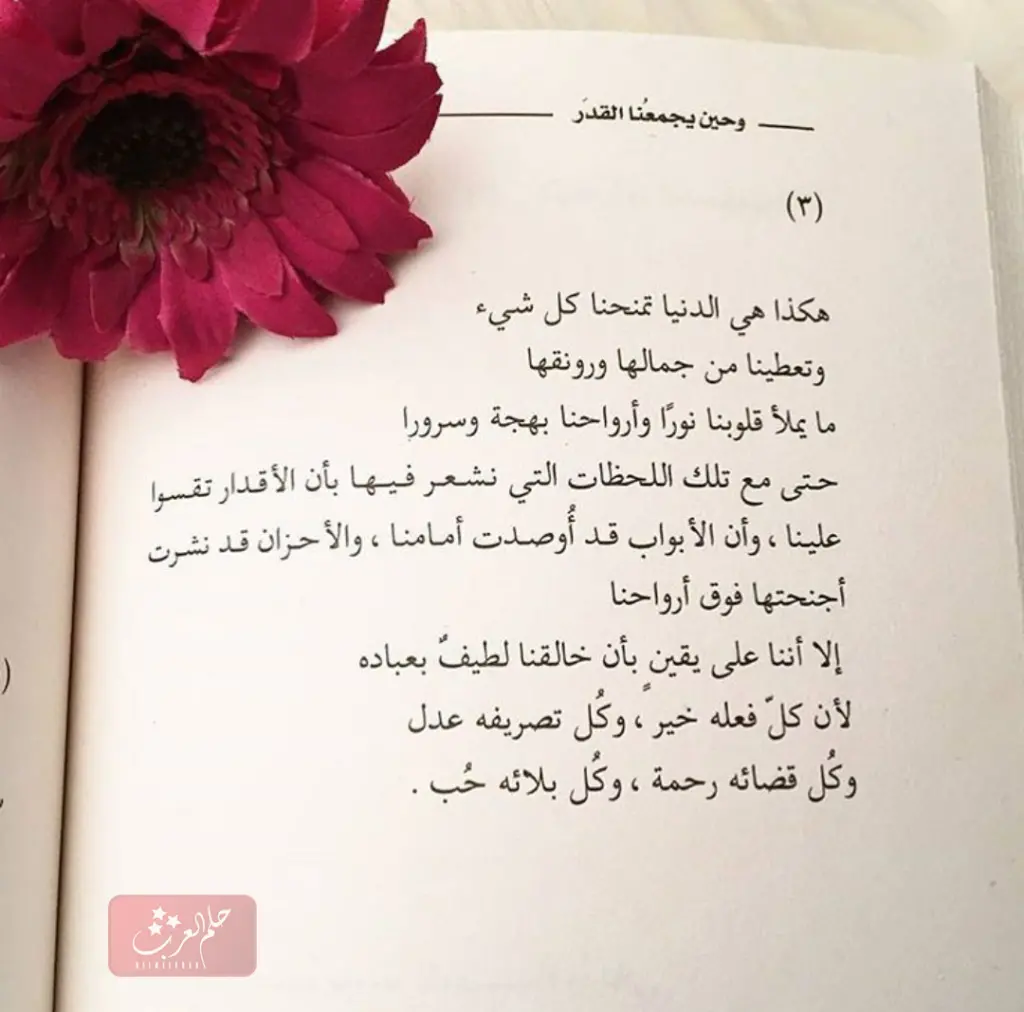 وحين يجمعُنا القدَر
(٣)
هكذا هي الدنيا تمنحنا كل شيء
وتعطينا من جمالها ورونقها
ما يملأ قلوبنا نورًا وأرواحنا بهجة وسرورا
حتى مع تلك اللحظات التي نشعر فيها بأن الأقدار تقسوا
علينا ، وأن الأبواب قد أُوصدت أمامنا ، والأحزان قد نشرت
أجنحتها فوق أرواحنا
إلا أننا على يقينٍ بأن خالقنا لطيفٌ بعباده
لأن كلّ فعله خير ، وكُل تصريفه عدل
وكُل قضائه رحمة ، وكُل بلائه حُب .
حلم العرب